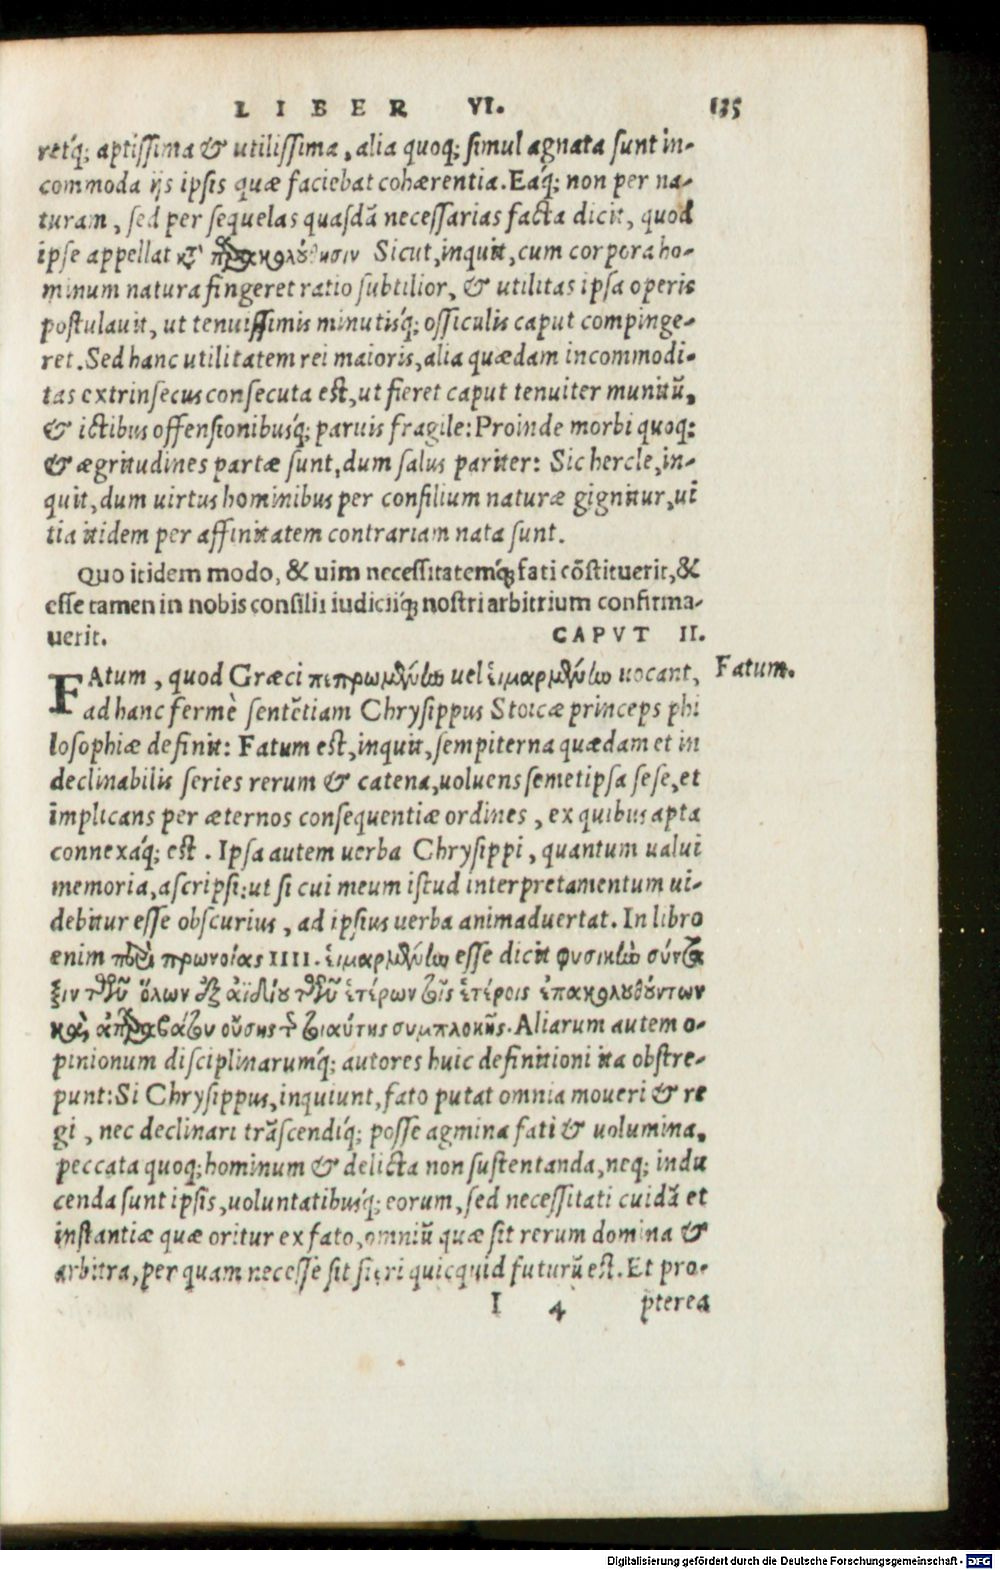 LIBER VI. 135
retq́; aptissima & utilissima, alia quoq; simul agnata sunt in-
commoda ijs ipsis quæ faciebat cohærentia. Eaq́; non per na-
turam, sed per sequelas quasdã necessarias facta dicit, quod
ipse appellat κτ̀ παρακολούθησιν Sicut, inquit, cum corpora ho-
minum natura fingeret ratio subtilior, & utilitas ipsa operis
postulauit, ut tenuissimis minutisq́; ossiculis caput compinge-
ret. Sed hanc utilitatem rei maioris, alia quædam incommodi-
tas extrinsecus consecuta est, ut fieret caput tenuiter munitũ,
& ictibus offensionibusq́; paruis fragile: Proinde morbi quoq;
& ægritudines partæ sunt, dum salus pariter: Sic hercle, in-
quit, dum uirtus hominibus per consilium naturæ gignitur, ui
tia itidem per affinitatem contrariam nata sunt.
Quo itidem modo, & uim necessitatemq́; fati cõstituerit, &
esse tamen in nobis consilii iudiciiq́; nostri arbitrium confirma-
uerit. CAPVT II.
FAtum, quod Græci πεπρωμένίω uel εἱμαρμένίω uocant, Fatum.
ad hanc fermè sentẽtiam Chrysippus Stoicæ princeps phi
losophiæ definit: Fatum est, inquit, sempiterna quædam et in
declinabilis series rerum & catena, uoluens semetipsa sese, et
implicans per æternos consequentiæ ordines, ex quibus apta
connexaq́; est. Ipsa autem uerba Chrysippi, quantum ualui
memoria, ascripsi: ut si cui meum istud interpretamentum ui-
debitur esse obscurius, ad ipsius uerba animaduertat. In libro
enim περὶ πρωνοίας IIII. εἱμαρμένίω esse dicit φυσικίω σύντα
ξιν τῶν ὅλων ἐξ ἀϊδίου τῶν ἑτέρων τοῖς ἑτέροις ἐπακολουθούντων
καὶ ἀπαραβάτου οὔσης τ̃ τοιαύτης συμπλοκῆς. Aliarum autem o-
pinionum disciplinarumq́; autores huic definitioni ita obstre-
punt: Si Chrysippus, inquiunt, fato putat omnia moueri & re
gi, nec declinari trãscendiq́; posse agmina fati & uolumina,
peccata quoq; hominum & delicta non sustentanda, neq; indu
cenda sunt ipsis, uoluntatibusq́; eorum, sed necessitati cuidã et
instantiæ quæ oritur ex fato, omniũ quæ sit rerum domina &
arbitra, per quam necesse sit fieri quicquid futurũ est. Et pro-
I 4 pterea
Digitalisierung gefördert durch die Deutsche Forschungsgemeinschaft - DFG